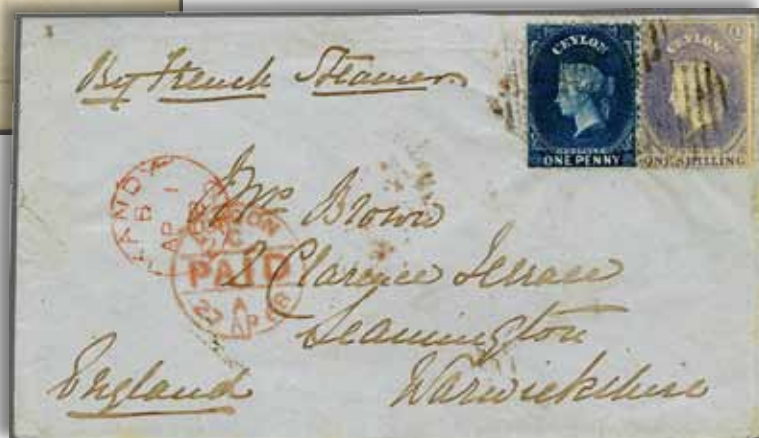 By French Steamer
CEYLON
ONE PENNY
CEYLON
ONE SHILLING
KANDY
B 1
AP
LONDON
PAID
27 AP 68
Mrs Brown
2 Clarence Terrace
Leamington
Warwickshire
England